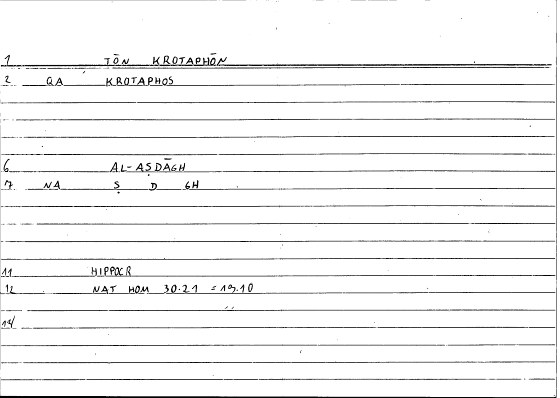 1 TŌN KROTAPHŌN
2 QA KROTAPHOS
6 AL-AṢDĀGH
7 NA Ṣ D GH
11 HIPPOCR
12 NAT HOM 30.21 = 19.10
14